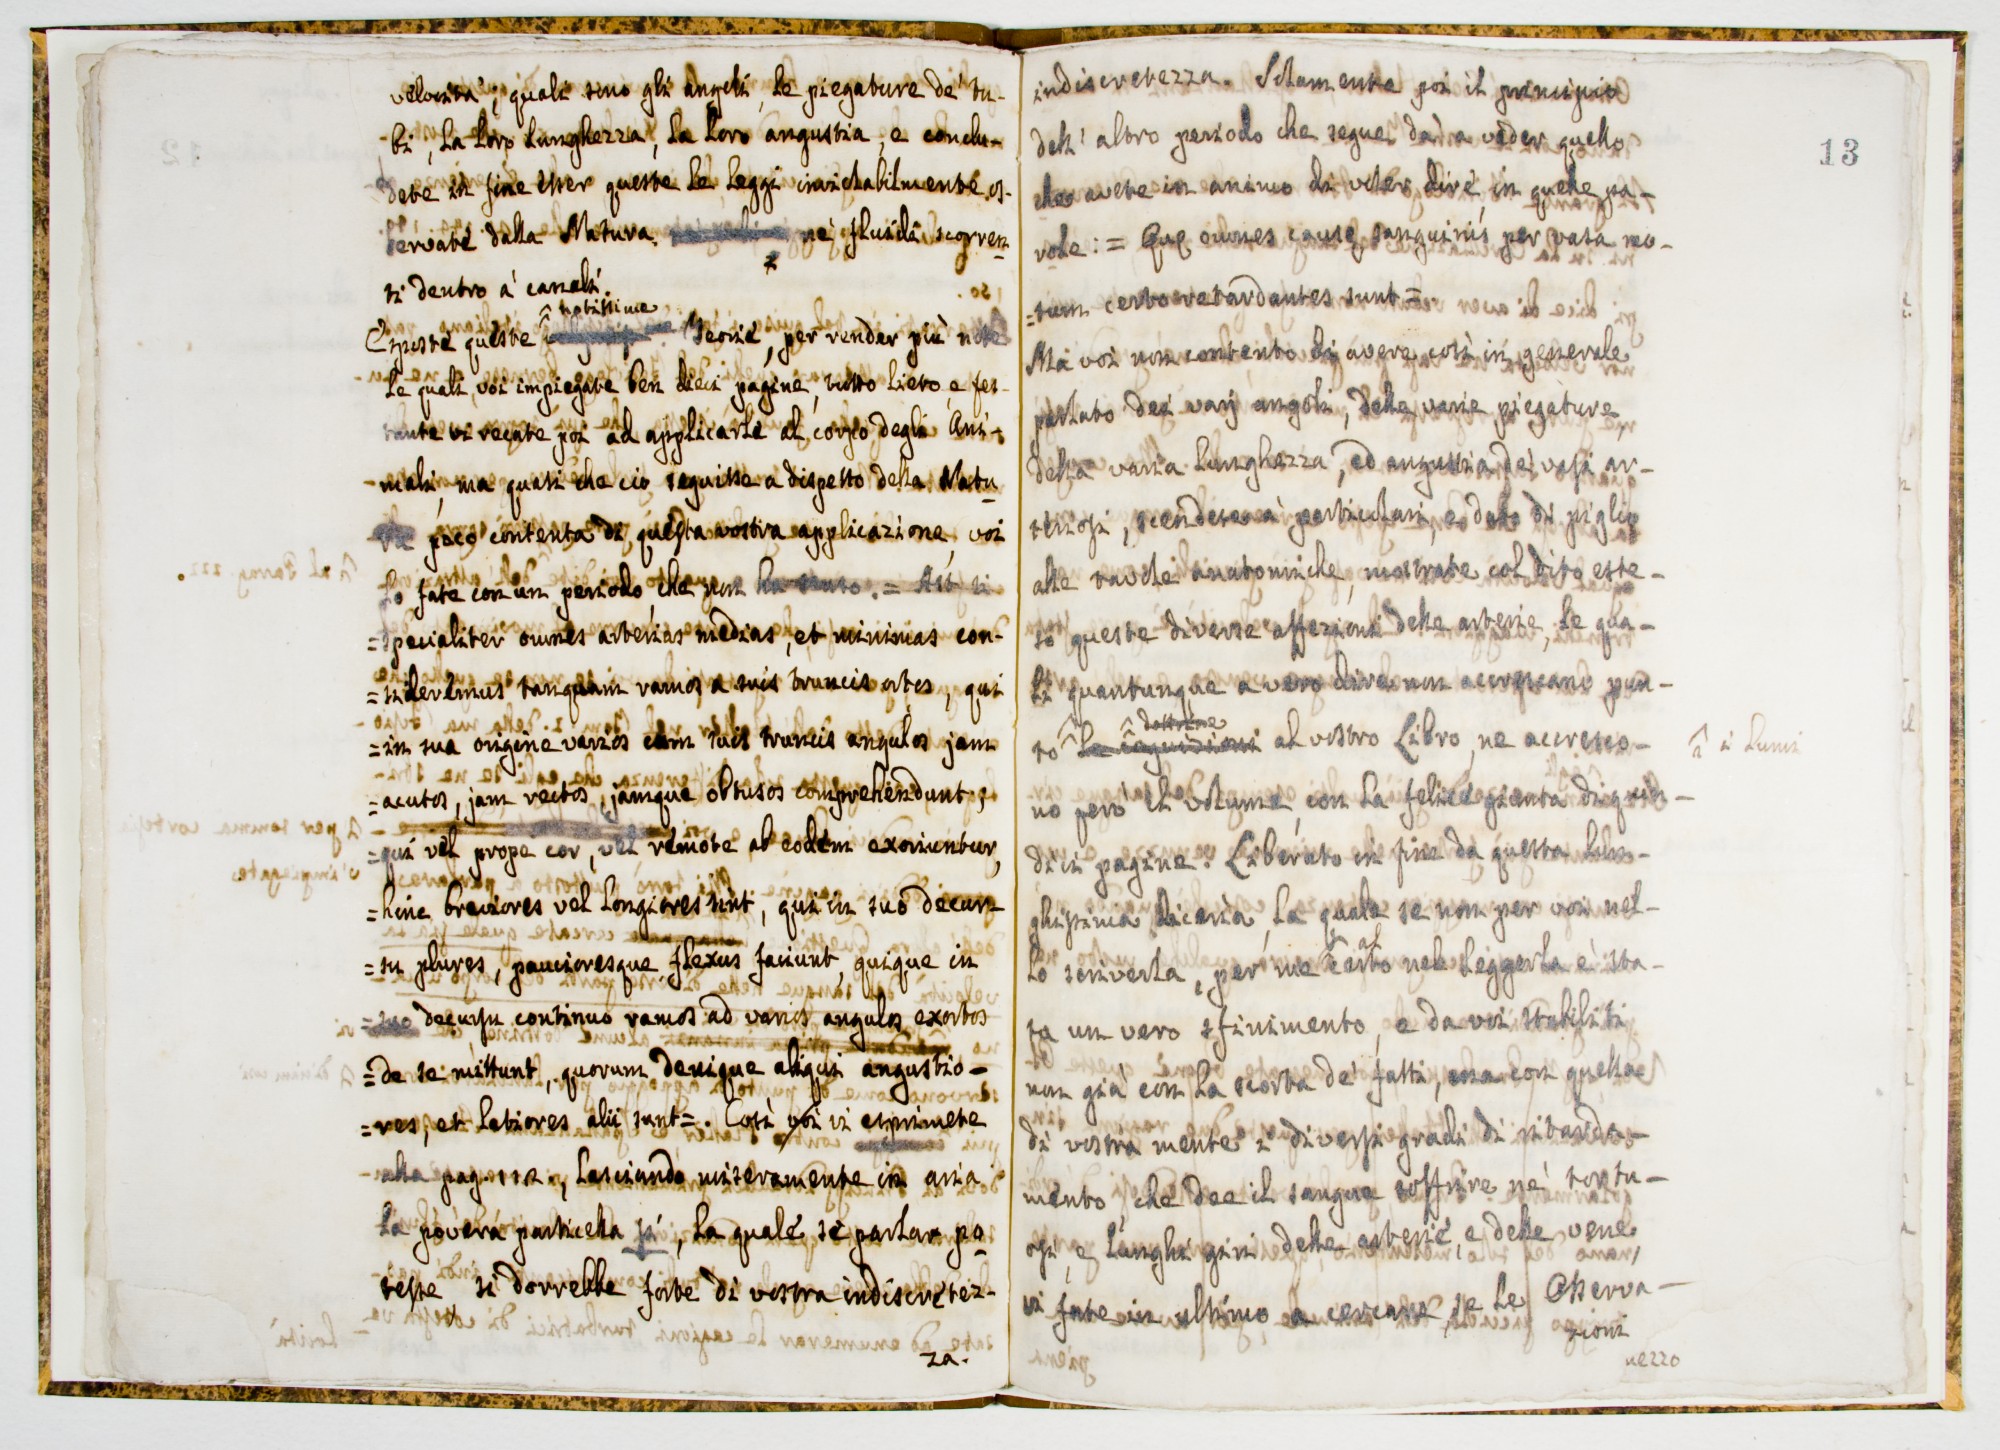 velocità; quali sono gli angoli, le piegature de' tu-
-bi, la loro lunghezza, la loro angustia, e conclu-
dete in fine esser queste le leggi inviolabilmente os-
servate dalla Natura ne' fluidi scorren
ti dentro a' canali.
notissime
Esposte queste Teorie, per render più note
le quali voi impiegate ben dieci pagine, tutto lieto, e fes-
tante vi recate poi ad applicarle al corpo degli Ani-
-mali, ma quasi che ciò seguisse a dispetto della Natu
ra poco contenta di questa vostra applicazione, voi
lo fate con un periodo, che non ha senso. = Ast si
=specialiter omnes arterias medias, et minimas con-
=sideremus tanquam ramos a suis truncis ortos, qui
=in sua origine varios cum suis truncis angulos jam
=acutos, jam rectos, jamque obtusos comprehendunt,
=qui vel prope cor, vel remote ab eodem exoriuntur,
=hinc breviores vel longiores sint, qui in suo decur-
=su plures, paucioresque flexus faciunt, quique in
=suo decursu continuo ramos ad varios angulos exortos
=de se mittunt, quorum denique aliqui angustio-
=res, et latiores alii sunt=. Così voi vi esprimete
alla pag. 112., lasciando miseramente in aria
la povera particella si, la quale se parlar po
tesse si dorrebbe forte di vostra indiscretez-
za.
13
indiscretezza. Solamente poi il principio
dell' altro periodo che segue dà a veder quello
che avete in animo di voler dire in quelle pa-
role: = Que omnes cause sanguinis per vasa mo-
=tum certo retardantes sunt=
Ma voi non contento di avere così in generale
parlato dei varj angoli, delle varie piegature,
della varia lunghezza, ed angustia de' vasi ar-
teriosi, scendete a' particolari, e dato di piglio
alle tavole anatomiche, mostrate col dito este-
so queste diverse affezioni delle arterie, le qua-
li quantunque a vero dire non accrescano pun-
dottrine
to le cognizioni al vostro Libro, ne accresco-
i lumi
no però il volume, con la felice giunta di quin-
dici pagine. Liberato in fine da questa lun-
ghissima diceria, la quale se non per voi nel-
al
lo scriverla, per me certo nel leggerla è sta-
ta un vero sfinimento, e da voi stabiliti
non già con la scorta de' fatti, ma con quella
di vostra mente i diversi gradi di ritarda-
mento, che dee il sangue soffrire ne' tortu-
osi, e lunghi giri delle arterie, e delle vene
vi fate in ultimo a cercare, se le Osserva-
zioni